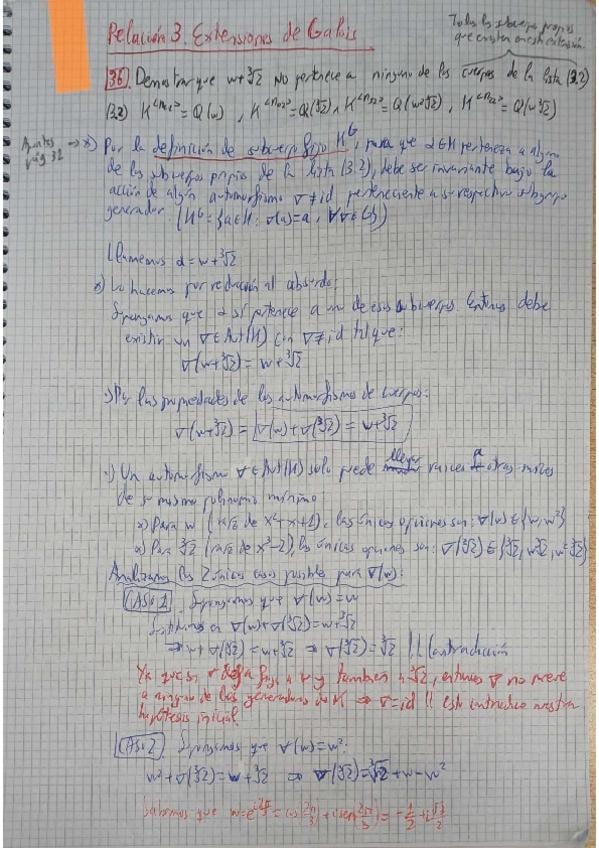 Todos los subcuerpos propios
que existen en esta extensión.
Relación 3. Extensiones de Galois
36. Demostrar que w+∛2 no pertenece a ninguno de los cuerpos de la lista (3.2)
(3.2) K^<η₂₁> = Q(w), K^<η₁₂> = Q(∛2), K^<η₃₂> = Q(w²∛2), K^<η₂₂> = Q(w∛2)
Apuntes
pág 32
*) Por la definición de subcuerpo fijo K^G, para que α∈K pertenezca a alguno
de los subcuerpos propios de la lista (3.2), debe ser invariante bajo la
acción de algún automorfismo ∇≠id perteneciente a su respectivo subgrupo
generador. (K^G = {a∈K: ∇(a)=a, ∀∇∈G})
Llamemos α = w+∛2
*) Lo hacemos por reducción al absurdo:
Supongamos que α sí pertenece a uno de esos subcuerpos. Entonces debe
existir un ∇∈Aut(K) con ∇≠id tal que:
∇(w+∛2) = w+∛2
·) Por las propiedades de los automorfismos de cuerpos:
∇(w+∛2) = ∇(w)+∇(∛2) = w+∛2
·) Un automorfismo ∇∈Aut(K) solo puede llevar raíces a otras raíces
de su mismo polinomio mínimo:
*) Para w (raíz de x²+x+1), las únicas opciones son: ∇(w)∈{w,w²}
*) Para ∛2 (raíz de x³-2), las únicas opciones son: ∇(∛2)∈{∛2, w∛2, w²∛2}
Analizamos los 2 únicos casos posibles para ∇(w):
CASO 1. Suponemos que ∇(w)=w
Sustituimos en ∇(w)+∇(∛2)=w+∛2
⇒ w+∇(∛2) = w+∛2 ⇒ ∇(∛2)=∛2 !! Contradicción
Ya que si ∇ deja fijo a w y también a ∛2, entonces ∇ no mueve
a ninguno de los generadores de K ⇒ ∇=id !! esto contradice nuestra
hipótesis inicial.
CASO 2. Suponemos que ∇(w)=w²:
w²+∇(∛2) = w+∛2 ⇒ ∇(∛2)=∛2+w-w²
Sabemos que w = e^(i2π/3) = cos(2π/3)+i sen(2π/3) = -1/2+i√3/2